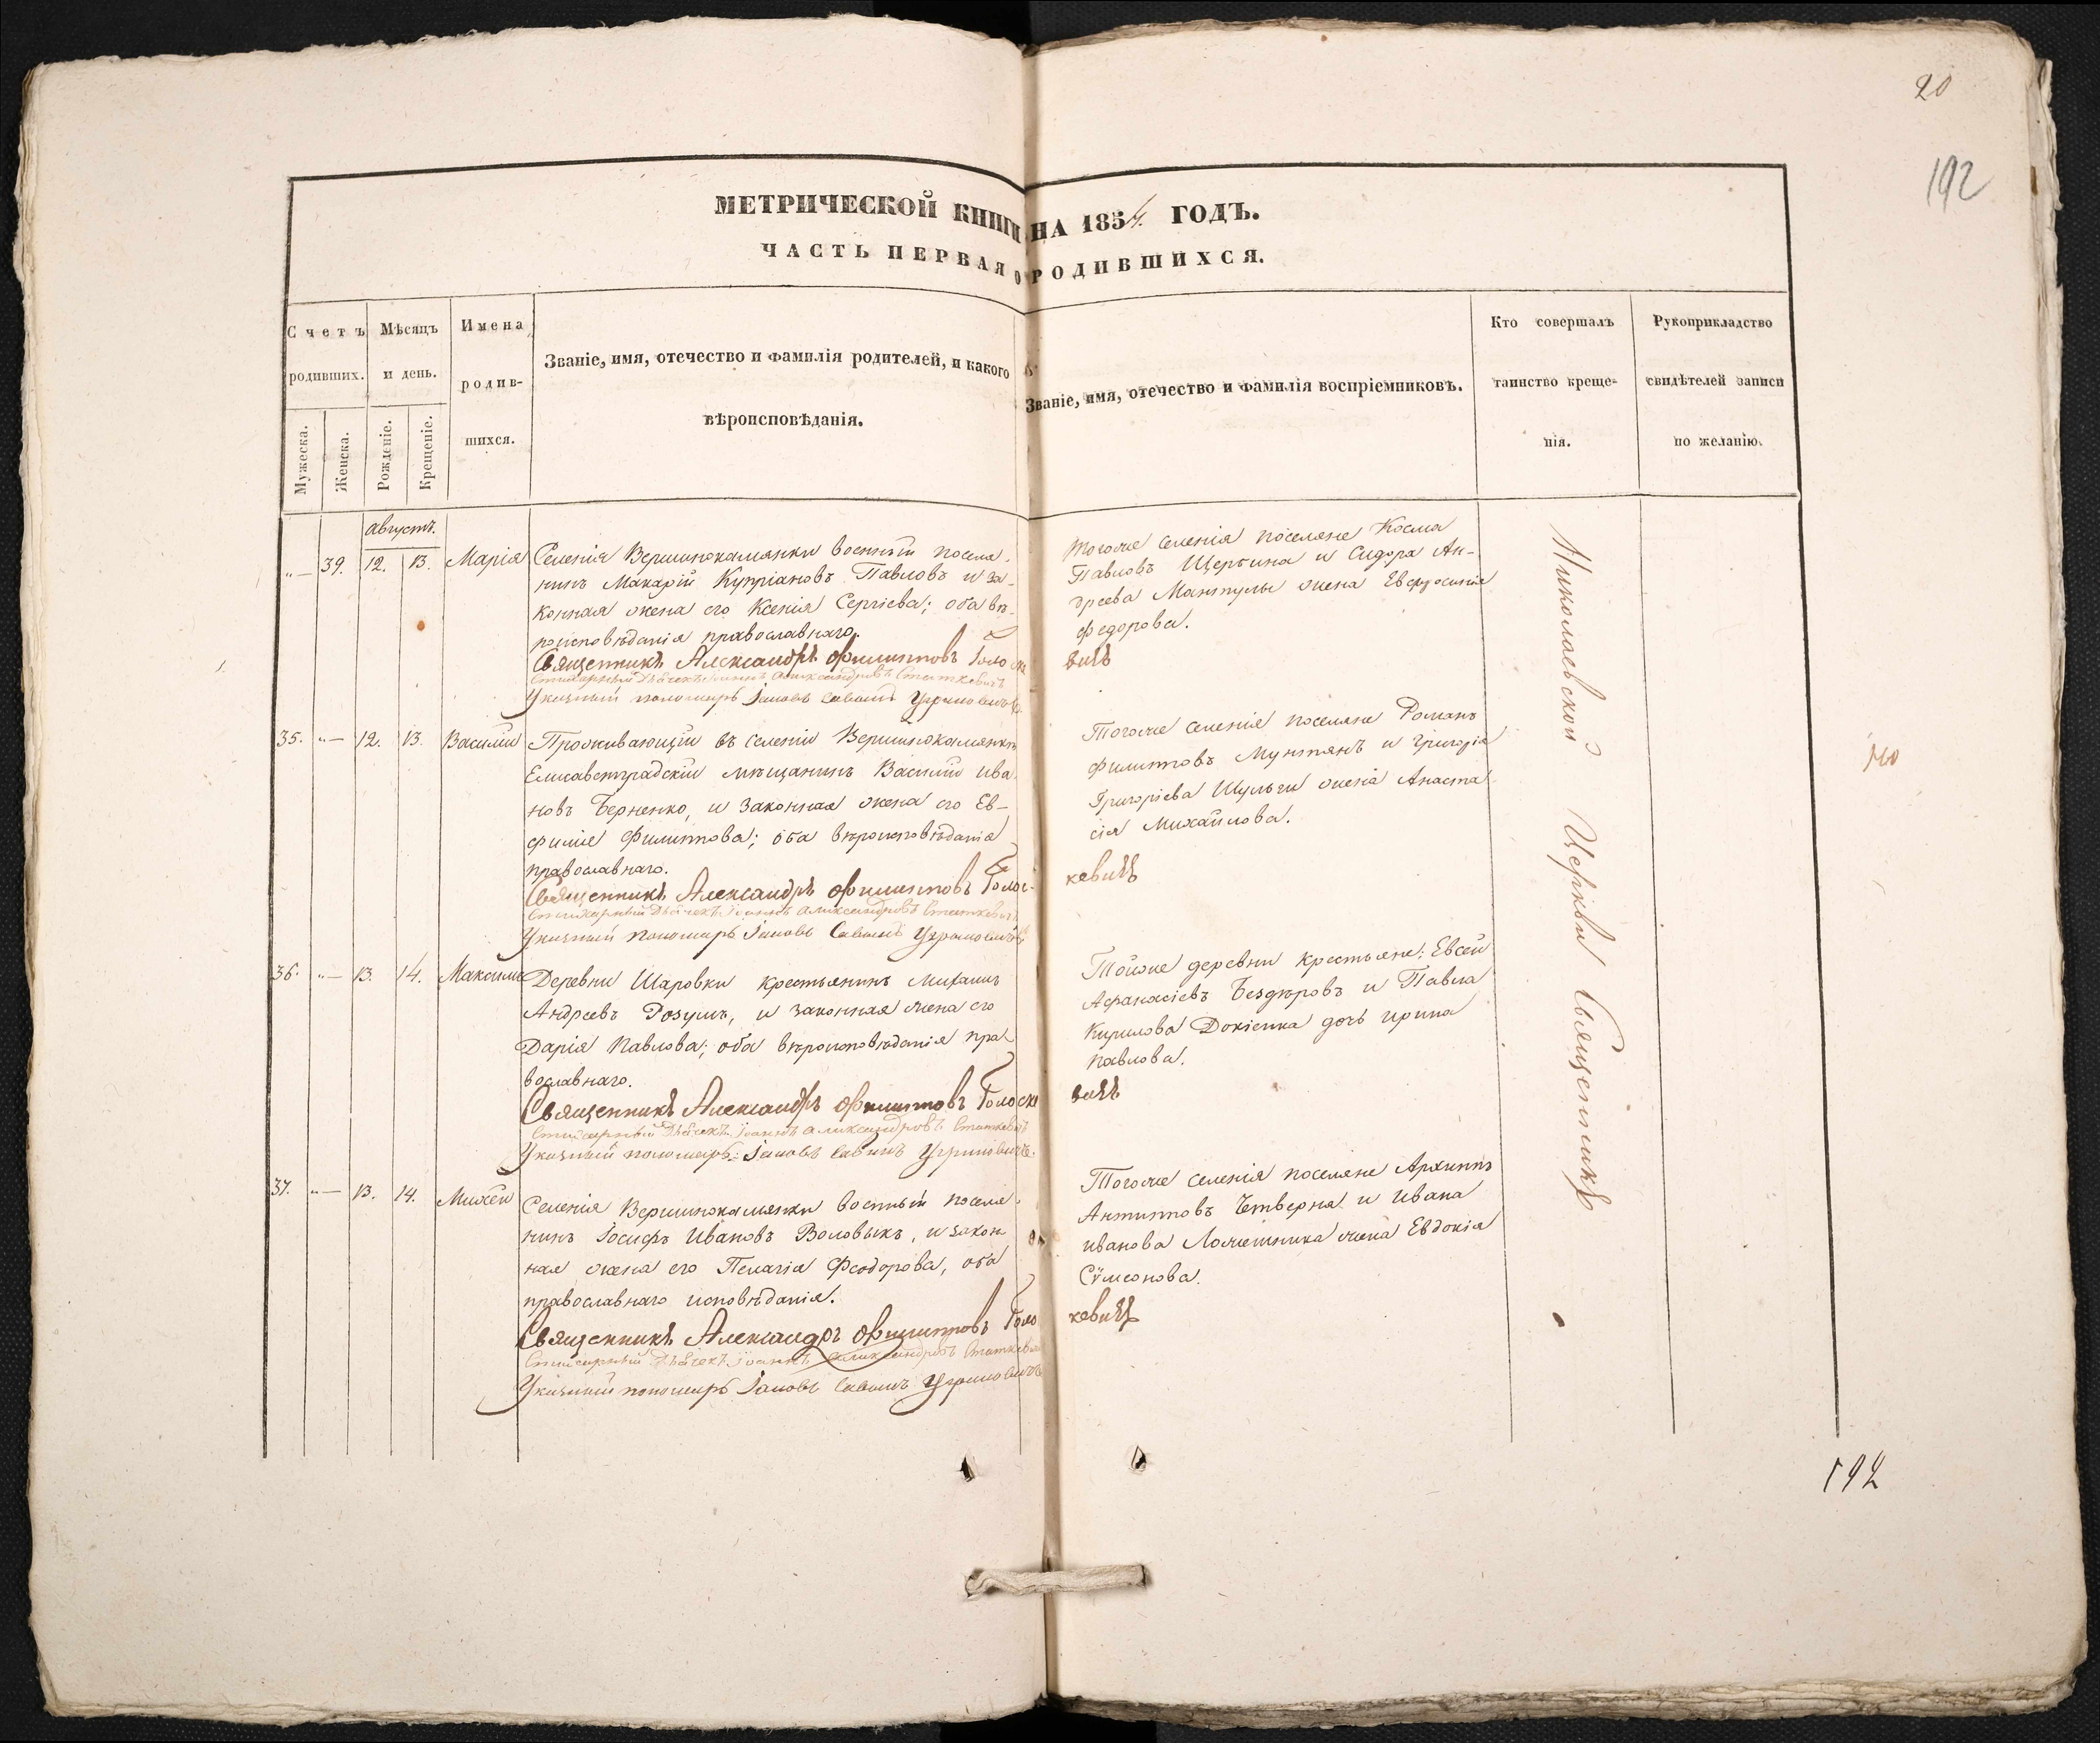 20
192
МЕТРИЧЕСКОЙ КНИГИ НА 1854. ГОДЪ.
ЧАСТЬ ПЕРВАЯ О РОДИВШИХСЯ.
Счетъ родившихъ.
Мужеска.
Женска.
Мѣсяцъ и день.
Рожденіе.
Крещеніе.
Имена родив-
шихся.
Званіе, имя, отечество и фамилія родителей, и какого
вѣроисповѣданія.
Званіе, имя, отечество и фамилія воспріемниковъ.
Кто совершалъ
таинство креще-
нія.
Рукоприкладство
свидѣтелей записи
по желанію.
Августъ.
"— 39. 12. 13. Марія
Селенія Вершинокамянки военный поселя-
нинъ Макарій Купріановъ Павловъ и за-
конная жена его Ксенія Сергіева; оба вѣ-
роисповѣданія православнаго.
Священникъ Александръ Филиповъ Голоске
вичь
Стихарный Дьячекъ Іоаннъ Александровъ Статкевичъ
Указный пономарь Іаковъ Саввинъ Угриновичь
Тогоже селенія поселяне Косма
Павловъ Щербина и Сидора Ан-
дреева Мантулы жена Евфросинія
Федорова.
35. "— 12. 13. Василій
Проживающій въ селеніи Вершинокамянки
Елисаветградскій мѣщанинъ Василій Ива-
новъ Берненко, и законная жена его Ев-
фимія Филиппова; оба вѣроисповѣданія
православнаго.
Священникъ Александръ Филиповъ Голос-
кевичь
Стихарный Дьячекъ Іоаннъ Александровъ Статкевичъ
Указный пономарь Іаковъ Саввинъ Угриновичь
Тогоже селенія поселяне Романъ
Филиповъ Мунтянъ и Григорія
Григоріева Шульги жена Анаста-
сія Михайлова.
36. "— 13. 14. Максимъ
Деревни Шаровки крестьянинъ Михаилъ
Андреевъ Розумъ, и законная жена его
Дарія Павлова; оба вѣроисповѣданія пра-
вославнаго.
Священникъ Александръ Филиповъ Голоске
вичь
Стихарный Дьячекъ Іоаннъ Александровъ Статкевичъ
Указный пономарь Іаковъ Саввинъ Угриновичь
Тойже деревни крестьяне: Евсей
Афанасіевъ Бездѣровъ и Павла
Кирилова Докіенка дочь Ирина
Павлова.
37. "— 13. 14. Михей
Селенія Вершинокамянки военный поселя-
нинъ Іосифъ Ивановъ Воловыкъ, и закон-
ная жена его Пелагія Феодорова, оба
православнаго исповѣданія.
Священникъ Александръ Филиповъ Голос
кевичь
Стихарный Дьячекъ Іоаннъ Александровъ Статкевичъ
Указный пономарь Іаковъ Саввинъ Угриновичь
Тогоже селенія поселяне Архипъ
Антиповъ Четверня и Ивана
Иванова жена Евдокія
Сѵмеонова.
Николаевской Церкви Священникъ
192